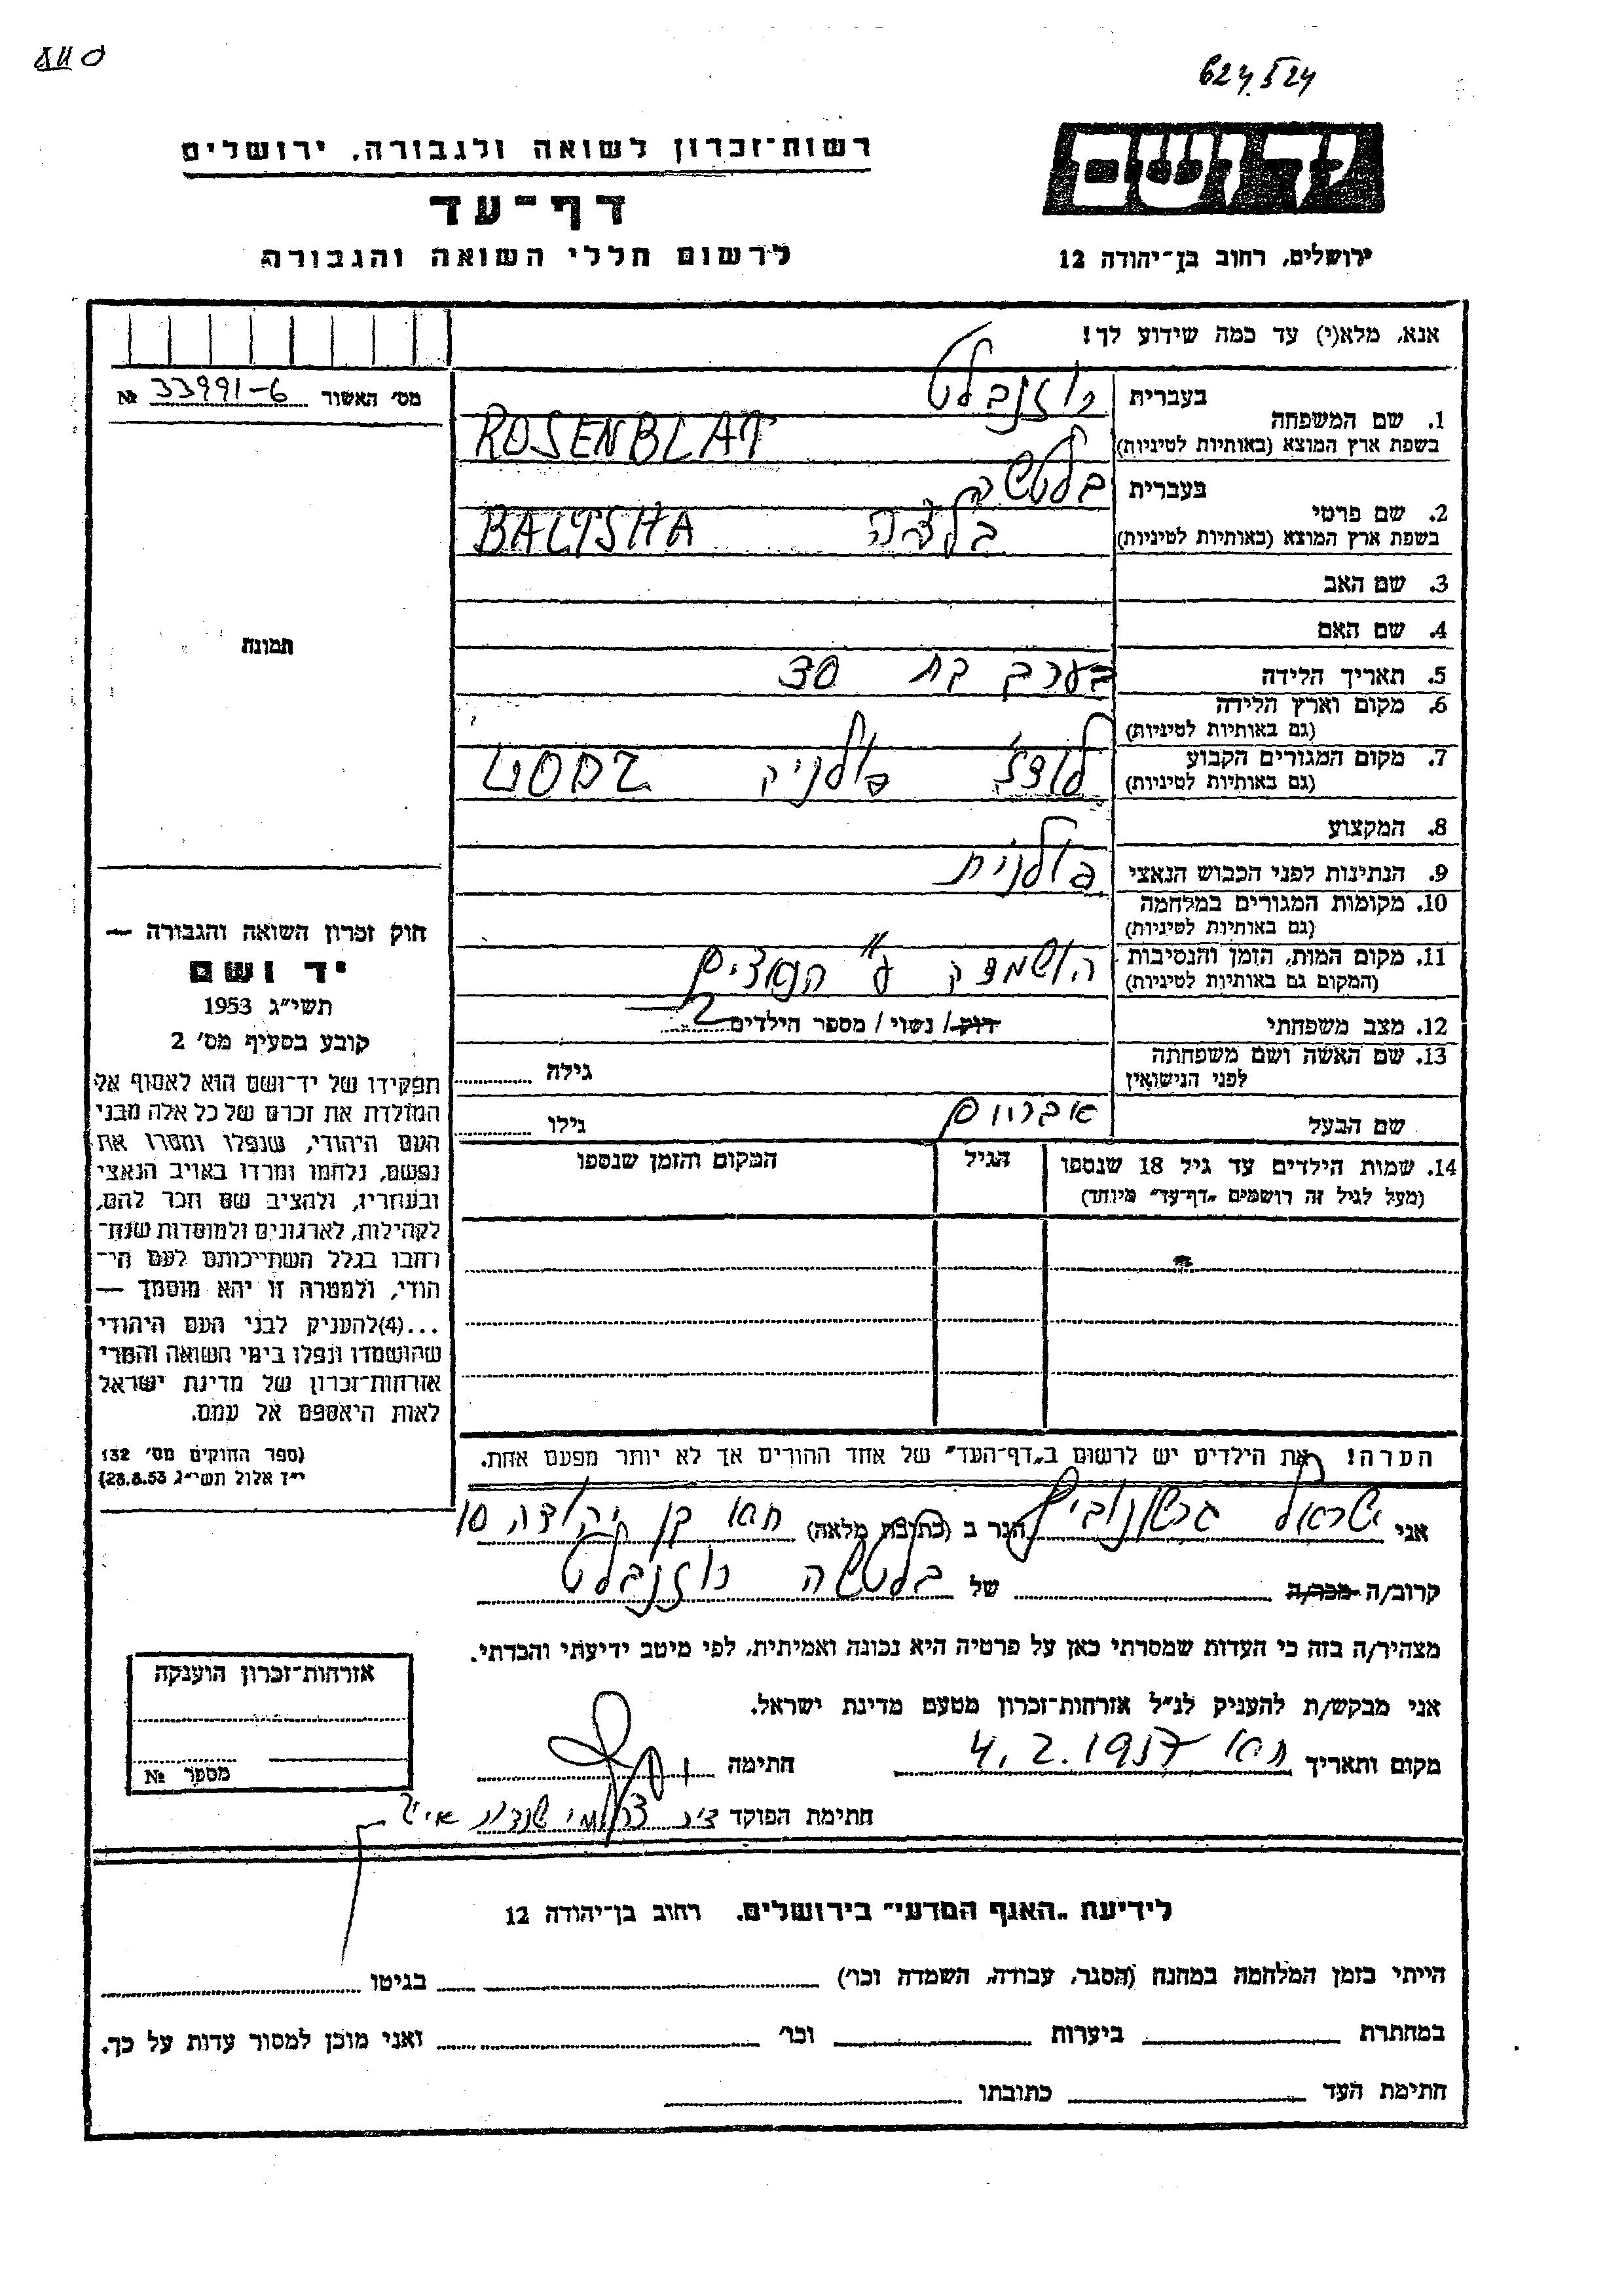 624.524
רשות־זכרון לשואה ולגבורה. ירושלים
יד ושם
דף־עד
לרשום חללי השואה והגבורה
ירושלים, רחוב בן־יהודה 12
אנא, מלא(י) עד כמה שידוע לך!
מס׳ האשור 33991-6 №
תמונה
בעברית רוזנבלט
1. שם המשפחה
בשפת ארץ המוצא (באותיות לטיניות) ROSENBLAT
בעברית בלטשה
2. שם פרטי
בשפת ארץ המוצא (באותיות לטיניות) בלצ׳ה BALTSHA
3. שם האב
4. שם האם
5. תאריך הלידה בערב בת 30
6. מקום וארץ הלידה
(גם באותיות לטיניות)
7. מקום המגורים הקבוע
(גם באותיות לטיניות) לודז׳ פולניה
8. המקצוע
9. הנתינות לפני הכבוש הנאצי פולנית
10. מקומות המגורים במלחמה
(גם באותיות לטיניות)
11. מקום המות, הזמן והנסיבות
(המקום גם באותיות לטיניות) הושמדה ע״ הנאצים
12. מצב משפחתי רוק/ נשוי/ מספר הילדים 2
13. שם האשה ושם משפחתה
לפני הנישואין גילה
שם הבעל אברהם גילו
14. שמות הילדים עד גיל 18 שנספו
(מעל לגיל זה רושמים „דף־עד״ מיוחד)
הגיל
המקום והזמן שנספו
הערה! את הילדים יש לרשום ב„דף־העד״ של אחד ההורים אך לא יותר מפעם אחת.
חוק זכרון השואה והגבורה —
יד ושם
תשי״ג 1953
קובע בסעיף מס׳ 2
תפקידו של יד־ושם הוא לאסוף אל
המולדת את זכרם של כל אלה מבני
העם היהודי, שנפלו ומסרו את
נפשם, נלחמו ומרדו באויב הנאצי
ובעוזריו, ולהציב שם וזכר להם,
לקהילות, לארגונים ולמוסדות שנח־
רחבו בגלל השתייכותם לעם הי־
הודי, ולמטרה זו יהא מוסמך —
...(4)להעניק לבני העם היהודי
שהושמדו ונפלו בימי השואה והמרי
אזרחות־זכרון של מדינת ישראל
לאות היאספם אל עמם.
(ספר החוקים מס׳ 132
י״ז אלול תשי״ג 28.8.53)
אני ישראל גרשונוביץ הגר ב (כתובת מלאה) חפא בן יהודה 10
קרוב/ה מכר/ה של בלטשה רוזנבלט
מצהיר/ה בזה כי העדות שמסרתי כאן על פרטיה היא נכונה ואמיתית, לפי מיטב ידיעתי והכרתי.
אני מבקש/ת להעניק לנ״ל אזרחות־זכרון מטעם מדינת ישראל.
מקום ותאריך חפא 4.2.1957 חתימה
חתימת הפוקד
אזרחות־זכרון הוענקה
מספר №
לידיעת „האגף המדעי״ בירושלים. רחוב בן־יהודה 12
הייתי בזמן המלחמה במחנה (הסגר, עבודה, השמדה וכו׳) בגיטו
במחתרת ביערות וכו׳ ואני מוכן למסור עדות על כך.
חתימת העד כתובתו